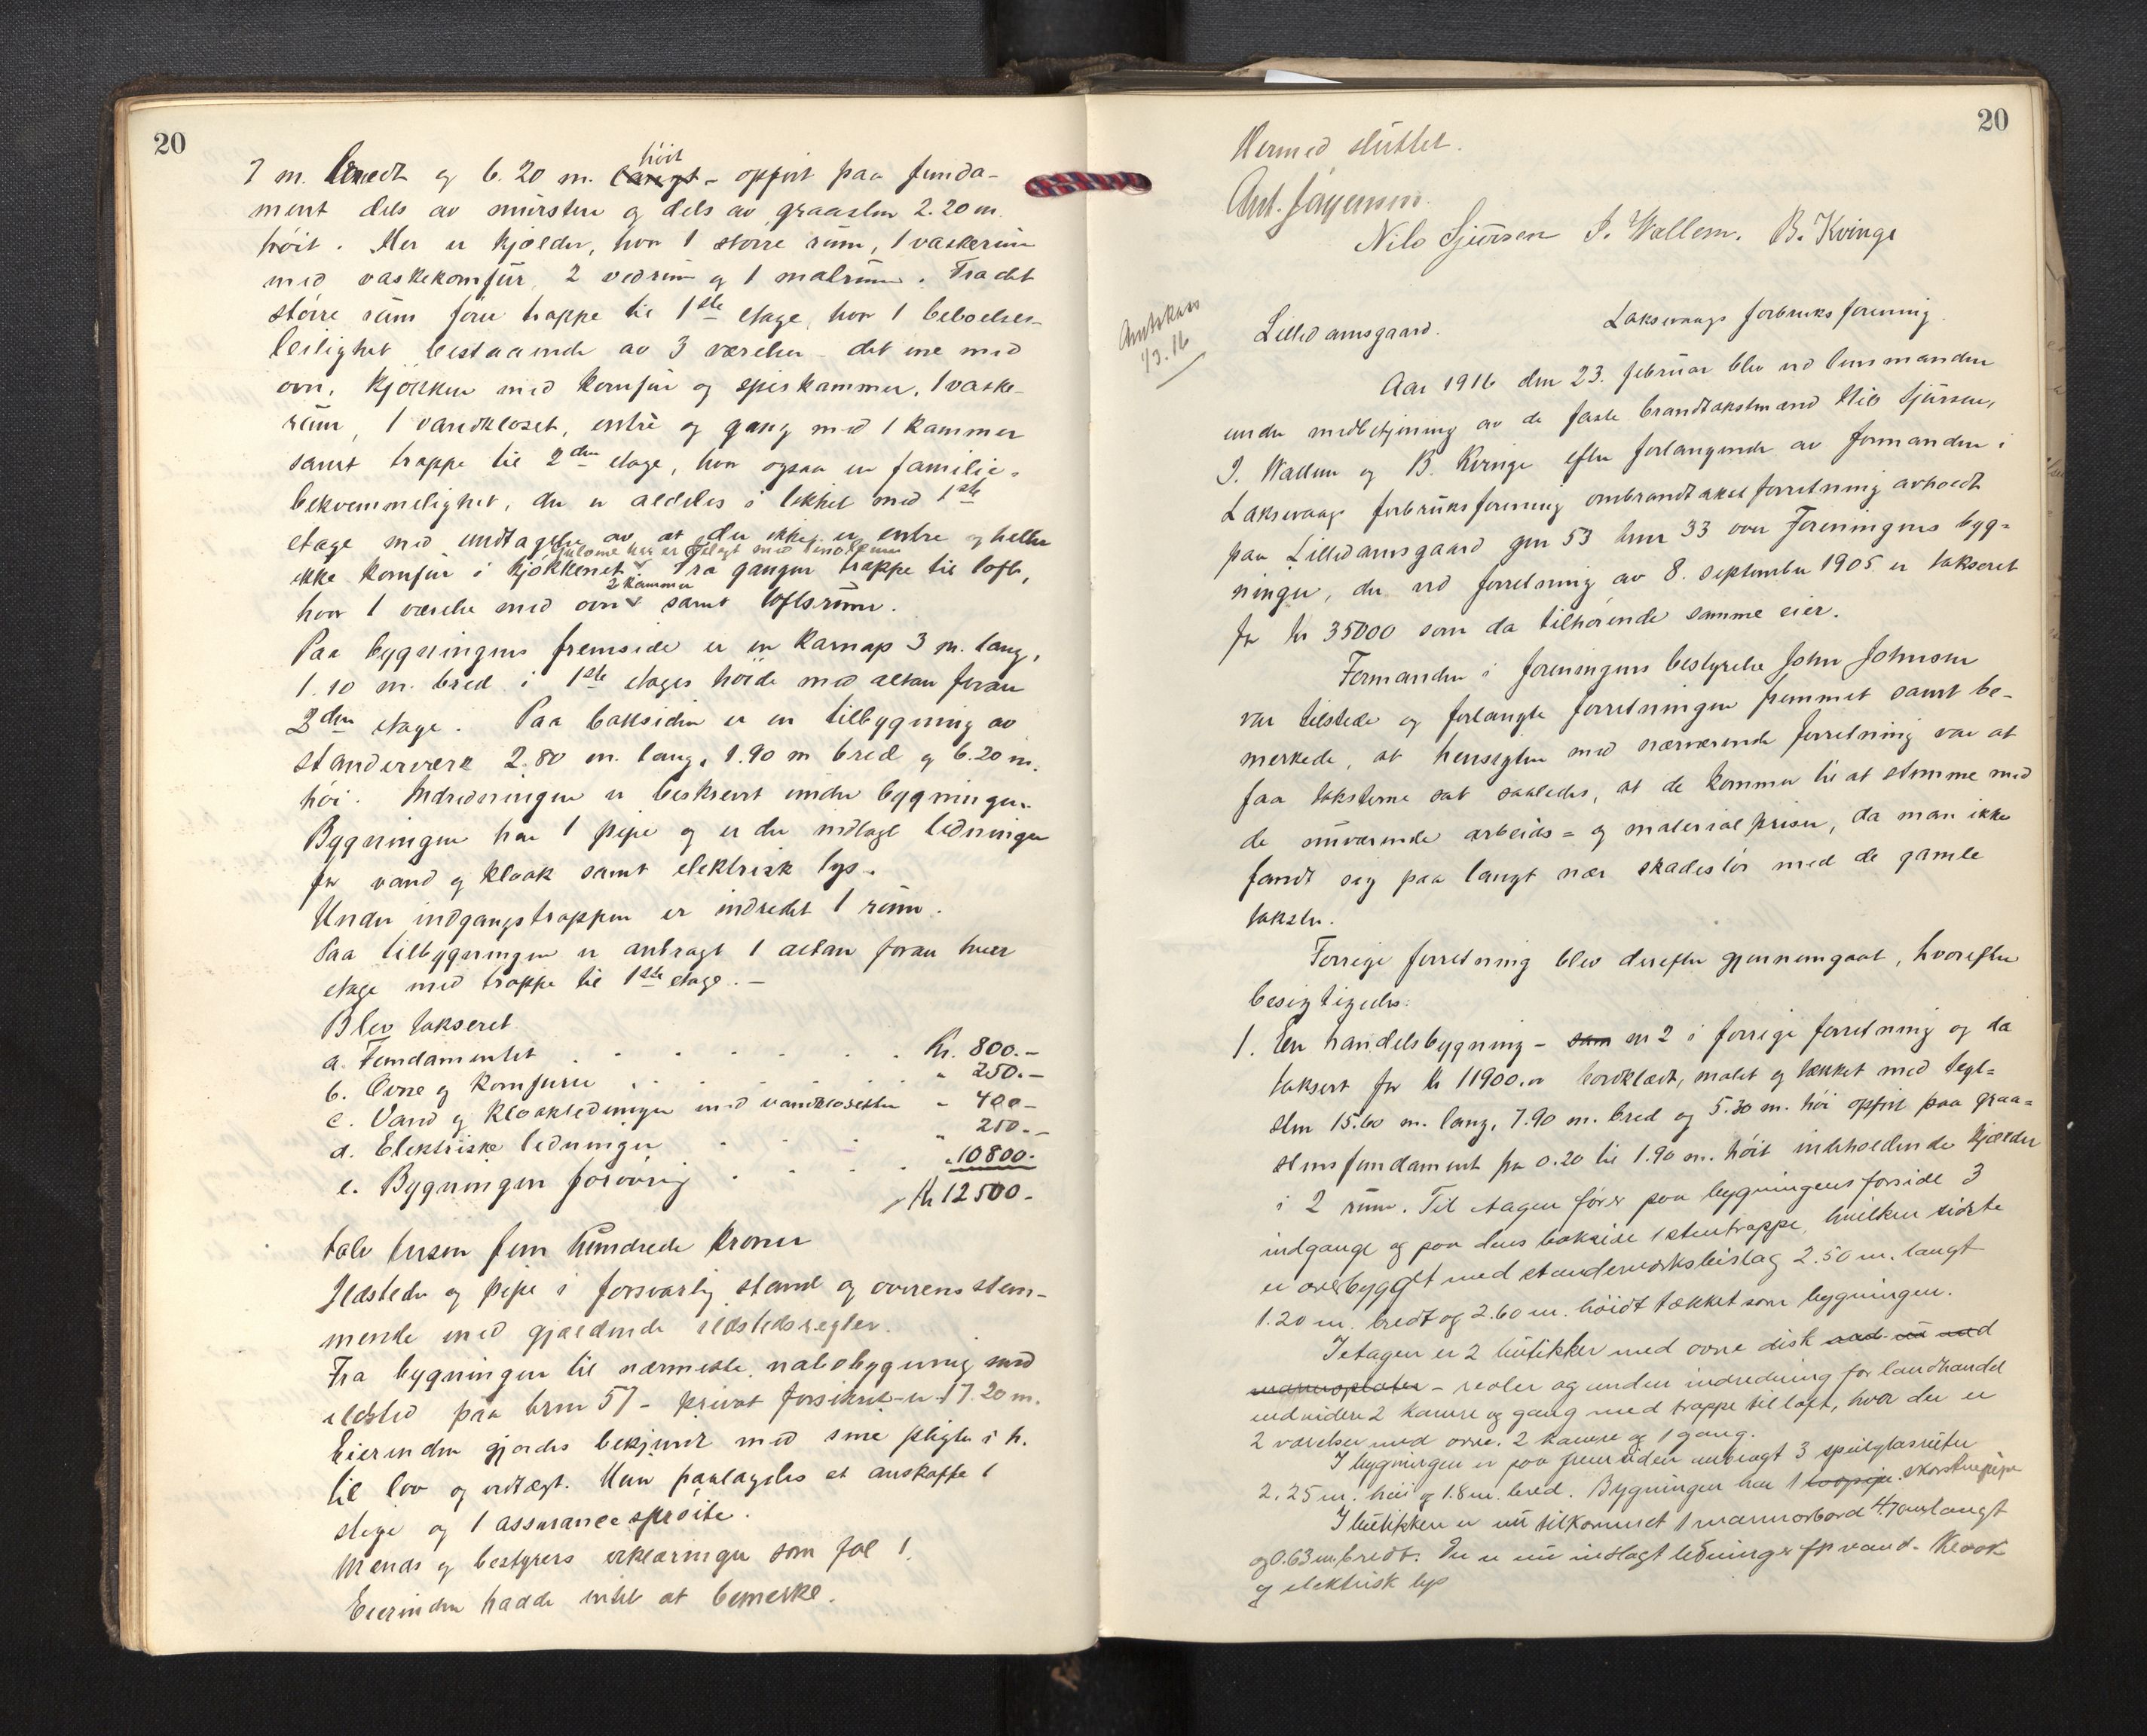 20
7 m. bredt og 6.20 m. langt høit - opført paa funda-
ment dels av mursten og dels av graasten 2.20 m.
høit. Her er kjelder, hvor 1 større rum, 1 vaskerum
med vaskekomfur, 2 vedrum og 1 matrum. Fra det
større rum fører trappe til 1ste etage, hvor 1 beboelses-
leilighet bestaaende av 3 værelser - det ene med
ovn, kjøkken med komfur og spiskammer, 1 vaske-
rum, 1 vandkloset, entré og gang med 1 kammer
samt trappe til 2den etage, hvor ogsaa en familie-
bekvemmelighet, der er aldeles i likhet med 1ste
etage med undtagelse av at der ikke er entre og heller
Gulvene her er belagt med linoleum
ikke komfur i kjøkkenet. Fra gangen trappe til loft,
2 kammer
hvor 1 værelse med ovn samt loftsrum.
Paa bygningens fremside er en karnap 3 m. lang,
1.10 m. bred i 1ste etages høide med altan foran
2den etage. Paa baksiden er en tilbygning av
standerværk 2.80 m. lang, 1.90 m bred og 6.20 m.
høi. Indredningen er beskrevet under bygningen.
Bygningen har 1 pipe og er der indlagt ledninger
for vand og kloak samt elektrisk lys.
Under indgangstrappen er indredet 1 rum.
Paa tilbygningen er anbragt 1 altan foran hver
etage med trappe til 1ste etage. -
Blev takseret
a. Fundamentet . . . . . . Kr. 800.-
b. Ovne og komfurer . . . . . . " 250.-
c. Vand og kloakledninger med vandklosetter " 400-
d. Elektriske ledninger . . . . " 250.-
e. Bygningen forøvrig . . . . " 10800.-
Kr 12500-
tolv tusen fem hundrede kroner
Ildsteder og pipe i forsvarlig stand og overensstem-
mende med gjældende ildstedsregler.
Fra bygningen til nærmeste nabobygning med
ildsted paa brnr 57 - privat forsikret - er 17.20 m.
Eierinden gjordes bekjendt med sine pligter i h.
til lov og vedtægt. Hun paalagdes at anskaffe 1
stige og 1 assurancesprøite.
Mænds og bestyrers erklæringer som fol 1.
Eierinden hadde intet at bemerke.
20
Hermed sluttet.
Ant. Jørgensen.
Nils Sjursen I. Wallem. B. Kvinge
Amtskass
1/3.16
Lilledamsgaard. Laksevaags forbruksforening.
Aar 1916 den 23. februar blev ved lensmanden
under medbetjening av de faste brandtakstmænd Nils Sjursen,
I. Wallem og B. Kvinge efter forlangende av formanden i
Laksevaags forbruksforening ombrandtakstforretning avholdt
paa Lilledamsgaard gnr 53 bnr 33 over Foreningens byg-
ninger, der ved forretning av 8. september 1905 er takseret
for kr 35000 som da tilhørende samme eier.
Formanden i foreningens bestyrelse John Johnsen
var tilstede og forlangte forretningen fremmet samt be-
merkede, at hensigten med nærværende forretning var at
faa taksterne sat saaledes, at de kommer til at stemme med
de nuværende arbeids- og materialpriser, da man ikke
fandt sig paa langt nær skadesløs med de gamle
takster.
Forrige forretning blev derefter gjennemgaat, hvorefter
besigtigedes:
1. En handelsbygning - som nr 2 i forrige forretning og da
taksert for kr 11900. er bordklædt, malet og tækket med tegl-
sten 15.60 m. lang, 7.90 m. bred og 5.30 m. høi opført paa graa-
stensfundament fra 0.20 til 1.90 m. høit indeholdende kjælder
i 2 rum. Til etagen fører paa bygningens forside 3
indgange og paa dens bakside 1 stentrappe, hvilken sidste
er overbygget med standerværksbislag 2.50 m. langt
1.20 m. bredt og 2.60 m. høidt tækket som bygningen.
I etagen er 2 butikker med ovne disk med en med
marmorplater - reoler og anden indredning for landhandel
endvidere 2 kamre og gang med trappe til loft, hvor der er
2 værelser med ovne. 2 kamre og 1 gang.
I bygningen er paa fremsiden anbragt 3 speilglasruter
2.25 m. høi og 1.8 m. bred. Bygningen har 1 skorstenspipe
I butikken er nu tilkommet 1 marmorbord 4.70 m langt
og 0.63 m. bredt. Der er nu indlagt ledninger for vand. Kloak
og elektrisk lys